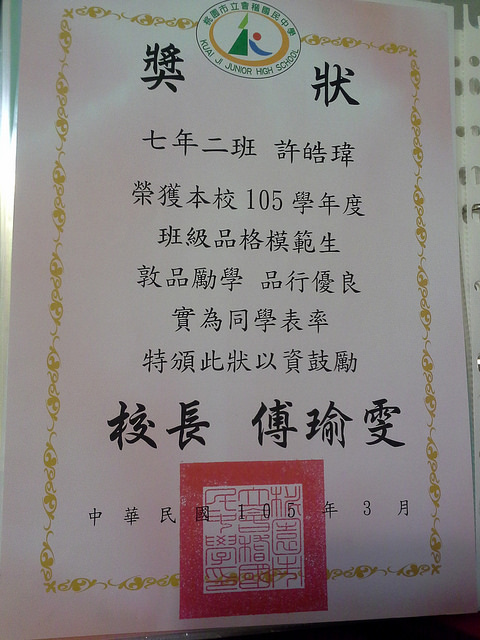 桃園市立會稽國民中學
KUAI JI JUNIOR HIGH SCHOOL
獎 狀
七年二班 許皓瑋
榮獲本校105學年度
班級品格模範生
敦品勵學 品行優良
實為同學表率
特頒此狀以資鼓勵
校長 傅瑜雯
中華民國105年3月
桃園市立會稽國民中學印